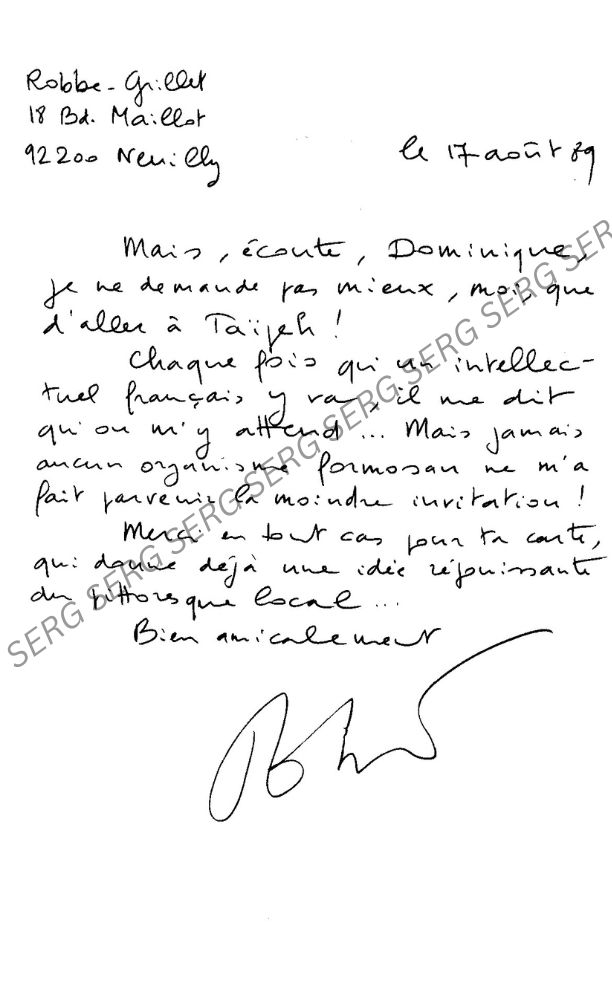 Robbe-Grillet
18 Bd. Maillot
92200 Neuilly
le 17 août 89
Mais, écoute, Dominique,
je ne demande pas mieux, moi, que
d'aller à Taïpeh !
Chaque fois qu'un intellec-
tuel français y va, il me dit
qu'on m'y attend ... Mais jamais
aucun organisme formosan ne m'a
fait parvenir la moindre invitation !
Merci en tout cas pour ta carte,
qui donne déjà une idée réjouissante
du pittoresque local ...
Bien amicalement
SERG SERG SERG SERG SERG SERG SERG SERG SERG